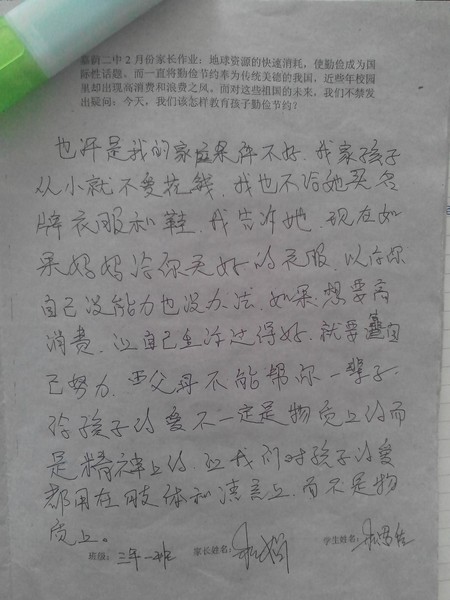 二中2月份家长作业：地球资源的快速消耗，使勤俭成为国
际性话题。而一直将勤俭节约奉为传统美德的我国，近些年校园
里却出现高消费和浪费之风。面对这些祖国的未来，我们不禁发
出疑问：今天，我们该怎样教育孩子勤俭节约？
也许是我的家庭条件不好.我家孩子
从小就不爱花钱.我也不给她买名
牌衣服和鞋.我告诉她.现在如
果妈妈给你买好的衣服.以后你
自己没能力也没办法.如果想要高
消费.让自己生活过得好.就要靠自
己努力.父母不能帮你一辈子.
给孩子的爱不一定是物质上的而
是精神上的.我们对孩子的爱
都用在肢体和语言上.而不是物
质上。
班级：三年一班 家长姓名： 学生姓名：